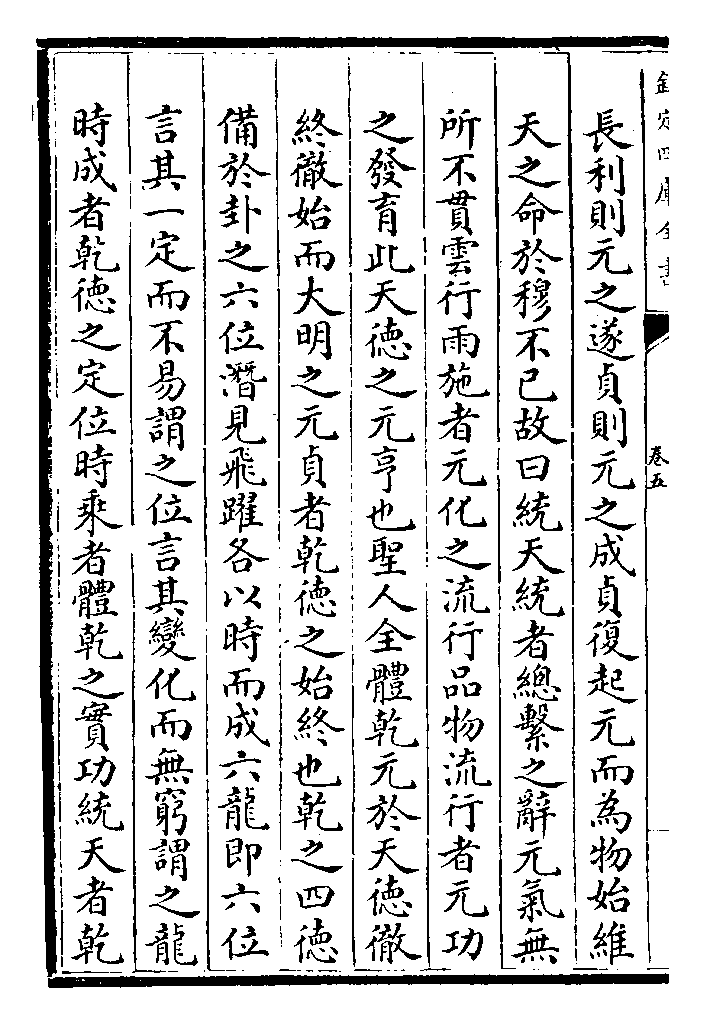 欽定四庫全書
卷五
長利則元之遂貞則元之成貞復起元而為物始維
天之命於穆不已故曰統天統者總繫之辭元氣無
所不貫雲行雨施者元化之流行品物流行者元功
之發育此天德之元亨也聖人全體乾元於天德徹
終徹始而大明之元貞者乾德之始終也乾之四德
備於卦之六位潛見飛躍各以時而成六龍即六位
言其一定而不易謂之位言其變化而無窮謂之龍
時成者乾德之定位時乘者體乾之實功統天者乾